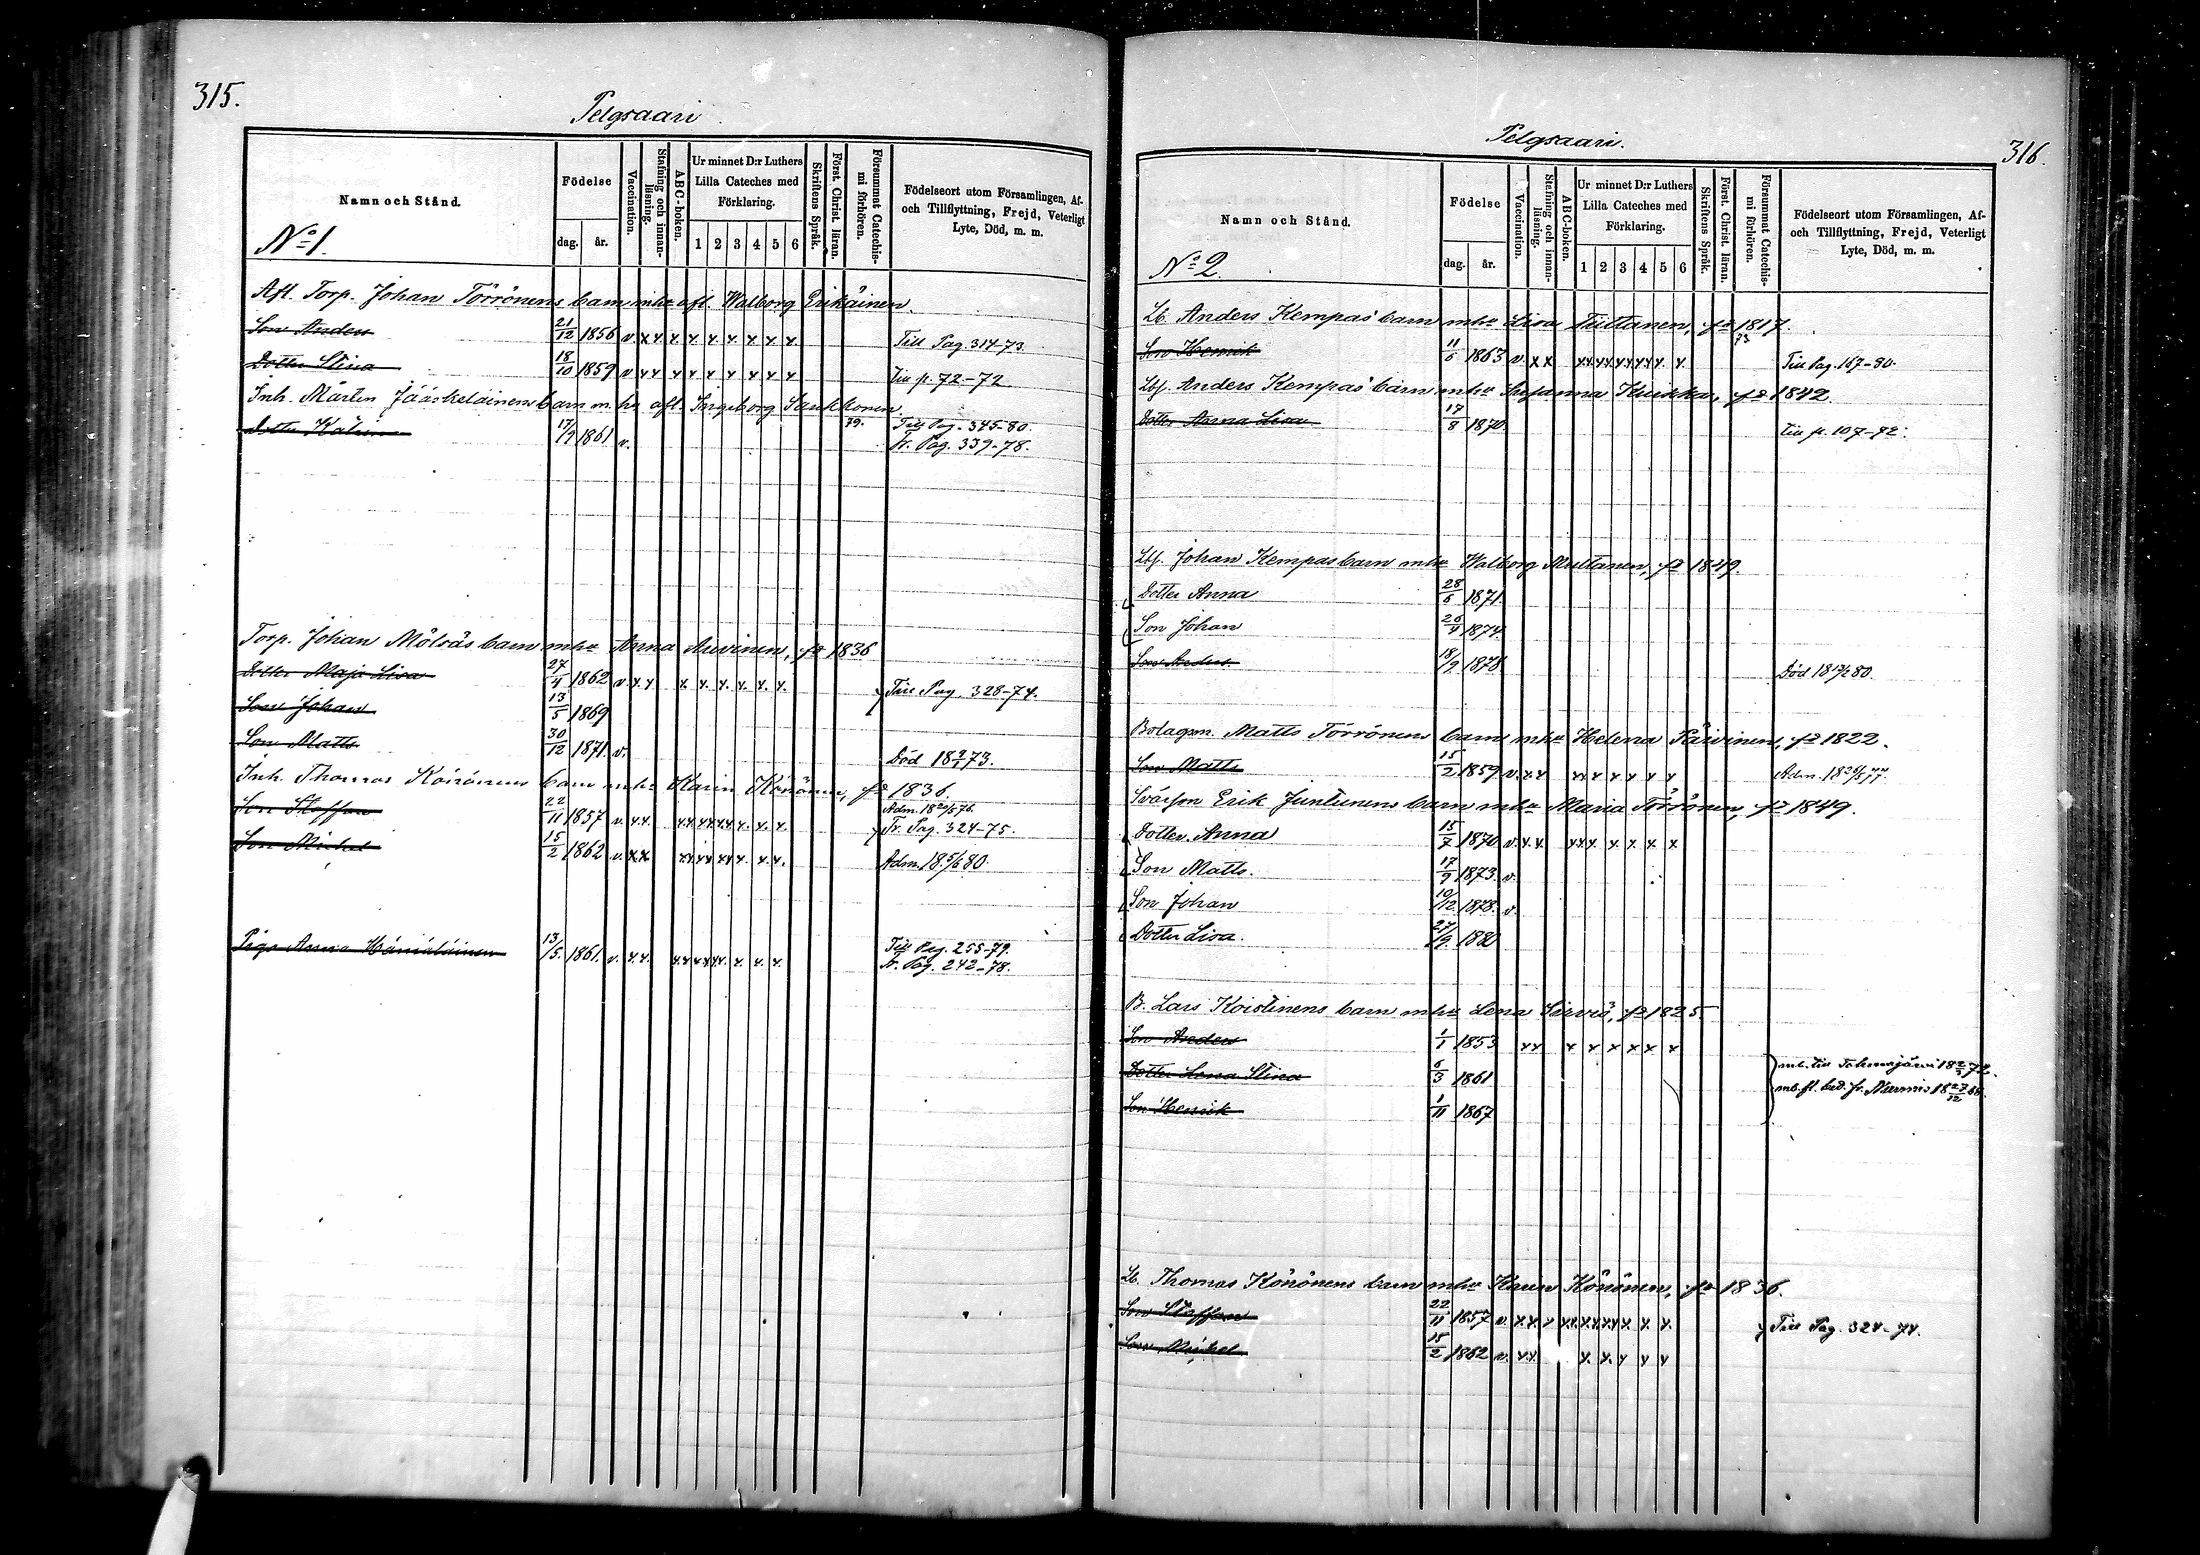 315.
Pelgsaari
Namn och Stånd.
Födelse
dag. år.
Vaccination.
Stafning och innanläsning.
ABC-boken.
Ur minnet D:r Luthers Lilla Cateches med Förklaring.
1 2 3 4 5 6
Skriftens Språk.
Först. Christ. läran.
Försummat Catechismi förhören.
Födelseort utom Församlingen, Af- och Tillflyttning, Frejd, Veterligt Lyte, Död, m. m.
No 1.
Afl. Torp. Johan Törrönens barn mhu afl. Walborg Erikäinen.
Son Anders 21/12 1856 v x x x x x x x x x Till Pag. 314-73.
Dotter Stina 18/10 1859 v x x x x x x x x x Till p. 72-72
Inh. Mårten Jääskeläinens barn m. hu afl. Ingeborg Saukkonen.
Dotter Katrin 17/9 1861 v. 79. Till Pag. 345-80.
Fr. Pag. 339-78.
Torp. Johan Mölsäs barn mhu Anna Arvinen, fd 1836
Dotter Maja Lisa 27/4 1862 v x x x x. x. x. x. x.
Son Johan 13/5 1869 Till Pag. 328-74.
Son Matts 30/12 1871 v. Död 18 9/1 73.
Inh. Thomas Könönens barn mhu Karin Könönen, fd 1836.
Son Staffan 22/11 1857 v. x x. xx xx xx x. x. x. Adm. 18 20/5 76.
Fr. Pag. 324-75.
Son Michel 15/2 1862 v. x x xx xx xx x x. x. Adm. 18 5/6 80.
Piga Anna Hämäläinen 13/5. 1861. v. x. x. xx xx xx. x. x. x. Till Pag. 255-79.
Fr. Pag. 242-78.
Pelgsaari.
316.
Namn och Stånd.
Födelse
dag. år.
Vaccination.
Stafning och innanläsning.
ABC-boken.
Ur minnet D:r Luthers Lilla Cateches med Förklaring.
1 2 3 4 5 6
Skriftens Språk.
Först. Christ. läran.
Försummat Catechismi förhören.
Födelseort utom Församlingen, Af- och Tillflyttning, Frejd, Veterligt Lyte, Död, m. m.
No 2.
Lb. Anders Kempas barn mhu Lisa Tiittanen, fd 1817.
Son Henrik 11/5 1863 v. x x xx xx xx xx x. x. 73 Till Pag. 167-80.
Lbj. Anders Kempas barn mhu Susanna fd 1842.
Dotter Anna Lisa 17/8 1870. Till p. 107-72.
Lbj. Johan Kempas barn mhu Walborg Multanen, fd 1849.
Dotter Anna 28/5 1871.
Son Johan 26/4 1874.
Son Anders 18/9 1878 Död 18 80.
Bolagsm. Matts Törrönens barn mhu Helena Päivinen, fd 1822.
Son Matts 15/2 1859 v. x x xx x x x x x Adm. 18 77.
Svärson Erik Juntunens barn mhu Maria Törrönen, fd 1849.
Dotter Anna 15/7 1870 v. x x xx x x x x x
Son Matts. 17/9 1873. v.
Son Johan 10/12 1878. v.
Dotter Lisa. 27/9. 1880
B. Lars Koistinens barn mhu Lena Sirviö, fd 1825.
Son Anders 1/1 1853 x x x x x x x x
Dotter Lena Stina 6/3 1861 mb. till Tohmajärvi 18 72.
mb. fr. Nurmis 18 27/12 68.
Son Henrik 1/11 1867
Lb. Thomas Könönens barn mhu Karin Könönen, fd 1836.
Son Staffan 22/11 1857 v. x x x xx xx xx x. x x. Till Pag. 324-74.
Son Mickel 15/2 1862 v. x x. x. x. x x x